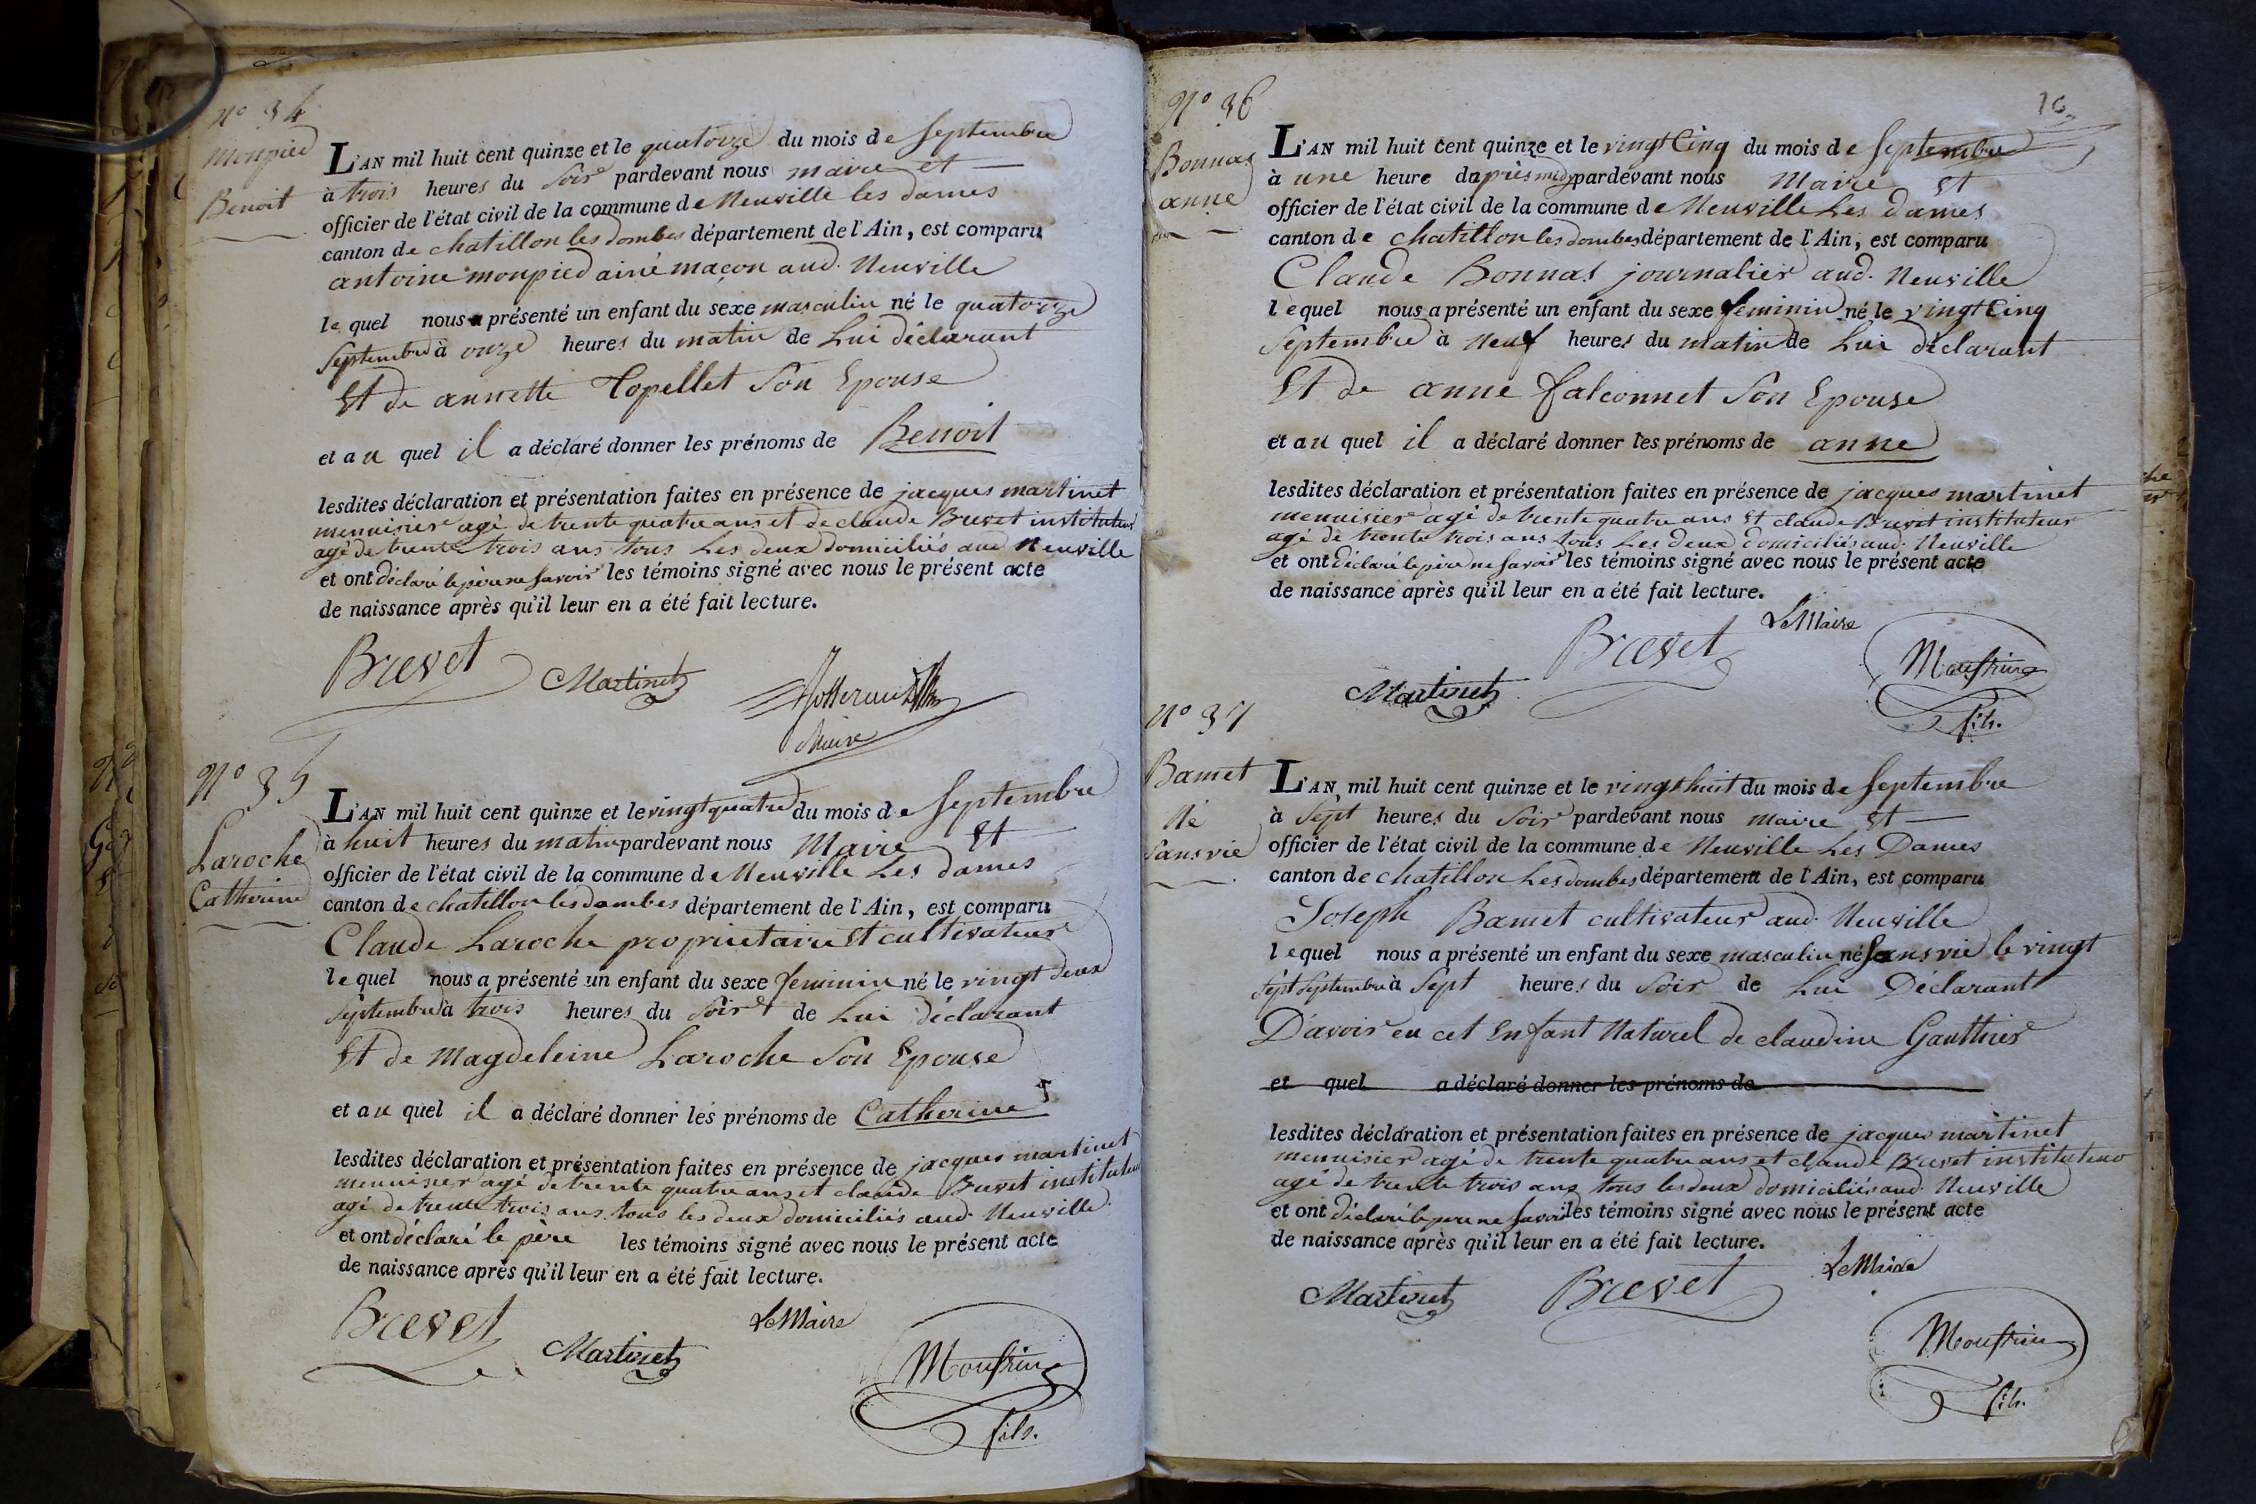 N° 34
Monpied
Benoit
L'AN mil huit cent quinze et le quatorze du mois de Septembre
à trois heures du Soir pardevant nous maire et
officier de l'état civil de la commune de Neuville les dames
canton de chatillon les dombes département de l'Ain, est comparu
antoine monpied ainé maçon aud. Neuville
lequel nous a présenté un enfant du sexe masculin né le quatorze
Septembre à onze heures du matin de Lui déclarant
Et de annette Topellet Son Epouse
et au quel il a déclaré donner les prénoms de Benoit
lesdites déclaration et présentation faites en présence de jacques martinet
menuisier agé de trente quatre ans et de claude Brevet instituteur
agé de trente trois ans tous Les deux domiciliés aud Neuville
et ont déclaré le père ne Savoir les témoins signé avec nous le présent acte
de naissance après qu'il leur en a été fait lecture.
Brevet Martinet
Maire
N° 35
Laroche
Catherine
L'AN mil huit cent quinze et le vingt quatre du mois de Septembre
à huit heures du matin pardevant nous Maire Et
officier de l'état civil de la commune de Neuville Les dames
canton de chatillon les dombes département de l'Ain, est comparu
Claude Laroche proprietaire Et cultivateur
lequel nous a présenté un enfant du sexe feminin né le vingt deux
Septembre à trois heures du Soir de Lui déclarant
Et de Magdeleine Laroche Son Epouse
et au quel il a déclaré donner les prénoms de Catherine
lesdites déclaration et présentation faites en présence de jacques martinet
menuisier agé de trente quatre ans et claude Brevet instituteur
agé de trente trois ans tous les deux domiciliés aud. Neuville
et ont déclaré le père les témoins signé avec nous le présent acte
de naissance après qu'il leur en a été fait lecture.
Brevet Martinet Le Maire
Monfrin
fils.
16
N° 36
Bonnas
anne
L'AN mil huit cent quinze et le vingt Cinq du mois de Septembre
à une heure daprès midy pardevant nous Maire Et
officier de l'état civil de la commune de Neuville Les dames
canton de chatillon les dombes département de l'Ain, est comparu
Claude Bonnas journalier aud. Neuville
lequel nous a présenté un enfant du sexe feminin né le vingt Cinq
Septembre à Neuf heures du matin de Lui déclarant
Et de anne falconnet Son Epouse
et au quel il a déclaré donner les prénoms de anne
lesdites déclaration et présentation faites en présence de jacques martinet
menuisier agé de trente quatre ans Et claude Brevet instituteur
agé de trente trois ans tous Les deux domiciliés aud. Neuville
et ont déclaré le père ne Savoir les témoins signé avec nous le présent acte
de naissance après qu'il leur en a été fait lecture.
Martinet Brevet Le Maire
Monfrin
fils.
N° 37
Bamet
Né
Sans vie
L'AN mil huit cent quinze et le vingt huit du mois de Septembre
à Sept heures du Soir pardevant nous maire Et
officier de l'état civil de la commune de Neuville Les Dames
canton de chatillon Les dombes département de l'Ain, est comparu
Joseph Bamet cultivateur aud. Neuville
lequel nous a présenté un enfant du sexe masculin né Sans vie le vingt
Sept Septembre à Sept heures du Soir de Lui Déclarant
D'avoir eu cet Enfant Naturel de claudine Gauthier
et quel a déclaré donner les prénoms de
lesdites déclaration et présentation faites en présence de jacques martinet
menuisier agé de trente quatre ans et claude Brevet instituteur
agé de trente trois ans tous les deux domiciliés aud. Neuville
et ont déclaré le père ne Savoir les témoins signé avec nous le présent acte
de naissance après qu'il leur en a été fait lecture.
Martinet Brevet Le Maire
Monfrin
fils.